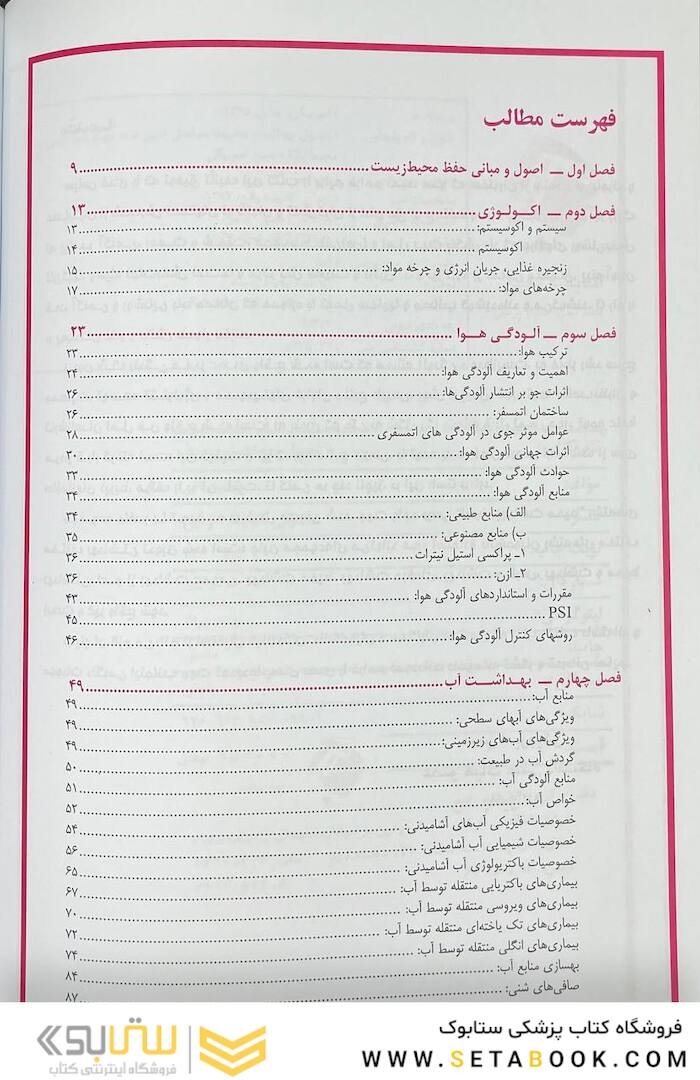 فهرست مطالب
فصل اول ـ اصول و مبانی حفظ محیط‌زیست ۹
فصل دوم ـ اکـولـوژی ۱۳
سیستم و اکوسیستم: ۱۳
اکوسیستم ۱۴
زنجیره غذایی، جریان انرژی و چرخه مواد: ۱۵
چرخه‌های مواد: ۱۷
فصل سوم ـ آلـودگـی هـوا ۲۳
ترکیب هوا: ۲۳
اهمیت و تعاریف آلودگی هوا: ۲۴
اثرات جو بر انتشار آلودگی‌ها: ۲۶
ساختمان اتمسفر: ۲۶
عوامل موثر جوی در آلودگی های اتمسفری ۲۸
اثرات جهانی آلودگی هوا: ۳۰
حوادث آلودگی هوا: ۳۳
منابع آلودگی هوا: ۳۴
الف) منابع طبیعی: ۳۴
ب) منابع مصنوعی: ۳۵
۱ـ پراکسی استیل نیترات ۳۶
۲ـ ازن: ۳۶
مقررات و استانداردهای آلودگی هوا: ۴۳
PSI ۴۵
روشهای کنترل آلودگی هوا: ۴۶
فصل چهارم ـ بهـداشـت آب ۴۹
منابع آب: ۴۹
ویژگی‌های آبهای سطحی: ۴۹
ویژگی‌های آب‌های زیرزمینی: ۴۹
گردش آب در طبیعت: ۵۰
منابع آلودگی آب: ۵۱
خواص آب: ۵۲
خصوصیات فیزیکی آب‌های آشامیدنی: ۵۴
خصوصیات شیمیایی آب آشامیدنی: ۵۶
خصوصیات باکتریولوژی آب آشامیدنی: ۶۵
بیماری‌های باکتریایی منتقله توسط آب: ۶۷
بیماری‌های ویروسی منتقله توسط آب: ۷۰
بیماری‌های تک یاخته‌ای منتقله توسط آب: ۷۲
بیماری‌های انگلی منتقله توسط آب: ۷۴
بهسازی منابع آب: ۸۴
صافی‌های شنی: ۸۷
فروشگاه کتاب پزشکی ستابوک
WWW.SETABOOK.COM
ستابوک
فروشگاه اینترنتی کتاب